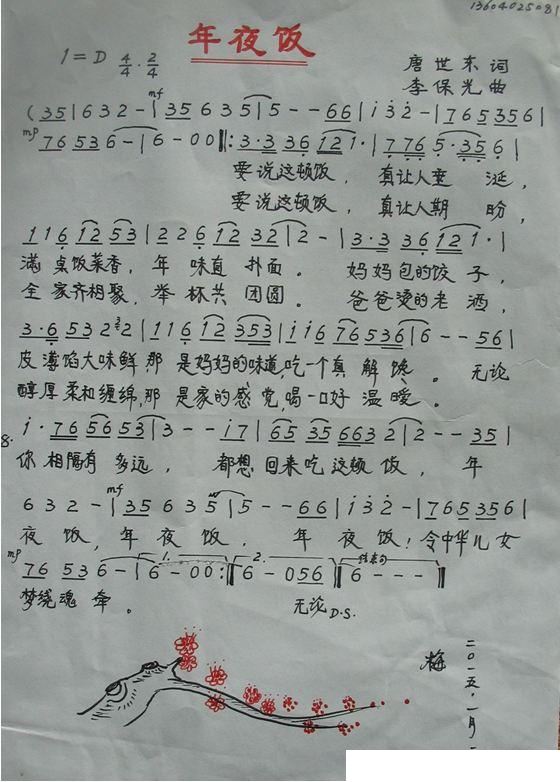 13604025081
年夜饭
1=D 4/4 · 2/4
唐世东 词
李保光 曲
mf
(35|632-|35 635|5--66|i32-|765356|
mp 76536-|6-00‖:3·3 36 121·|776 5·356|
要说这顿饭, 真让人垂 涎,
要说这顿饭, 真让人期 盼,
116 12 53|226 12 32|2-|3·3 36 121·|
满桌饭菜香, 年 味直 扑面。 妈妈包的饺 子,
全家齐相聚, 举 杯共 团圆。 爸爸烫的老 酒,
3·6 532 2|116 12 353|ii6 76 536|6--56|
皮薄馅大味鲜 那 是妈妈的味道,吃一个真 解 馋。 无论
醇厚柔和缠绵,那 是家的感 觉,喝一口好 温 暖。
8· i·76 5653|3--i7|65 35 663 2|2--35|
你 相隔有 多远, 都想 回来吃 这顿 饭, 年
mf
632-|35 635|5--66|i32-|765356|
夜 饭, 年 夜 饭, 年 夜 饭! 令中华儿女
mp 76 536-|6-00:‖6-056‖6---‖
1. 2. 结束句
梦绕魂 牵。 无论 D.S.
梅
二〇一五·一月·